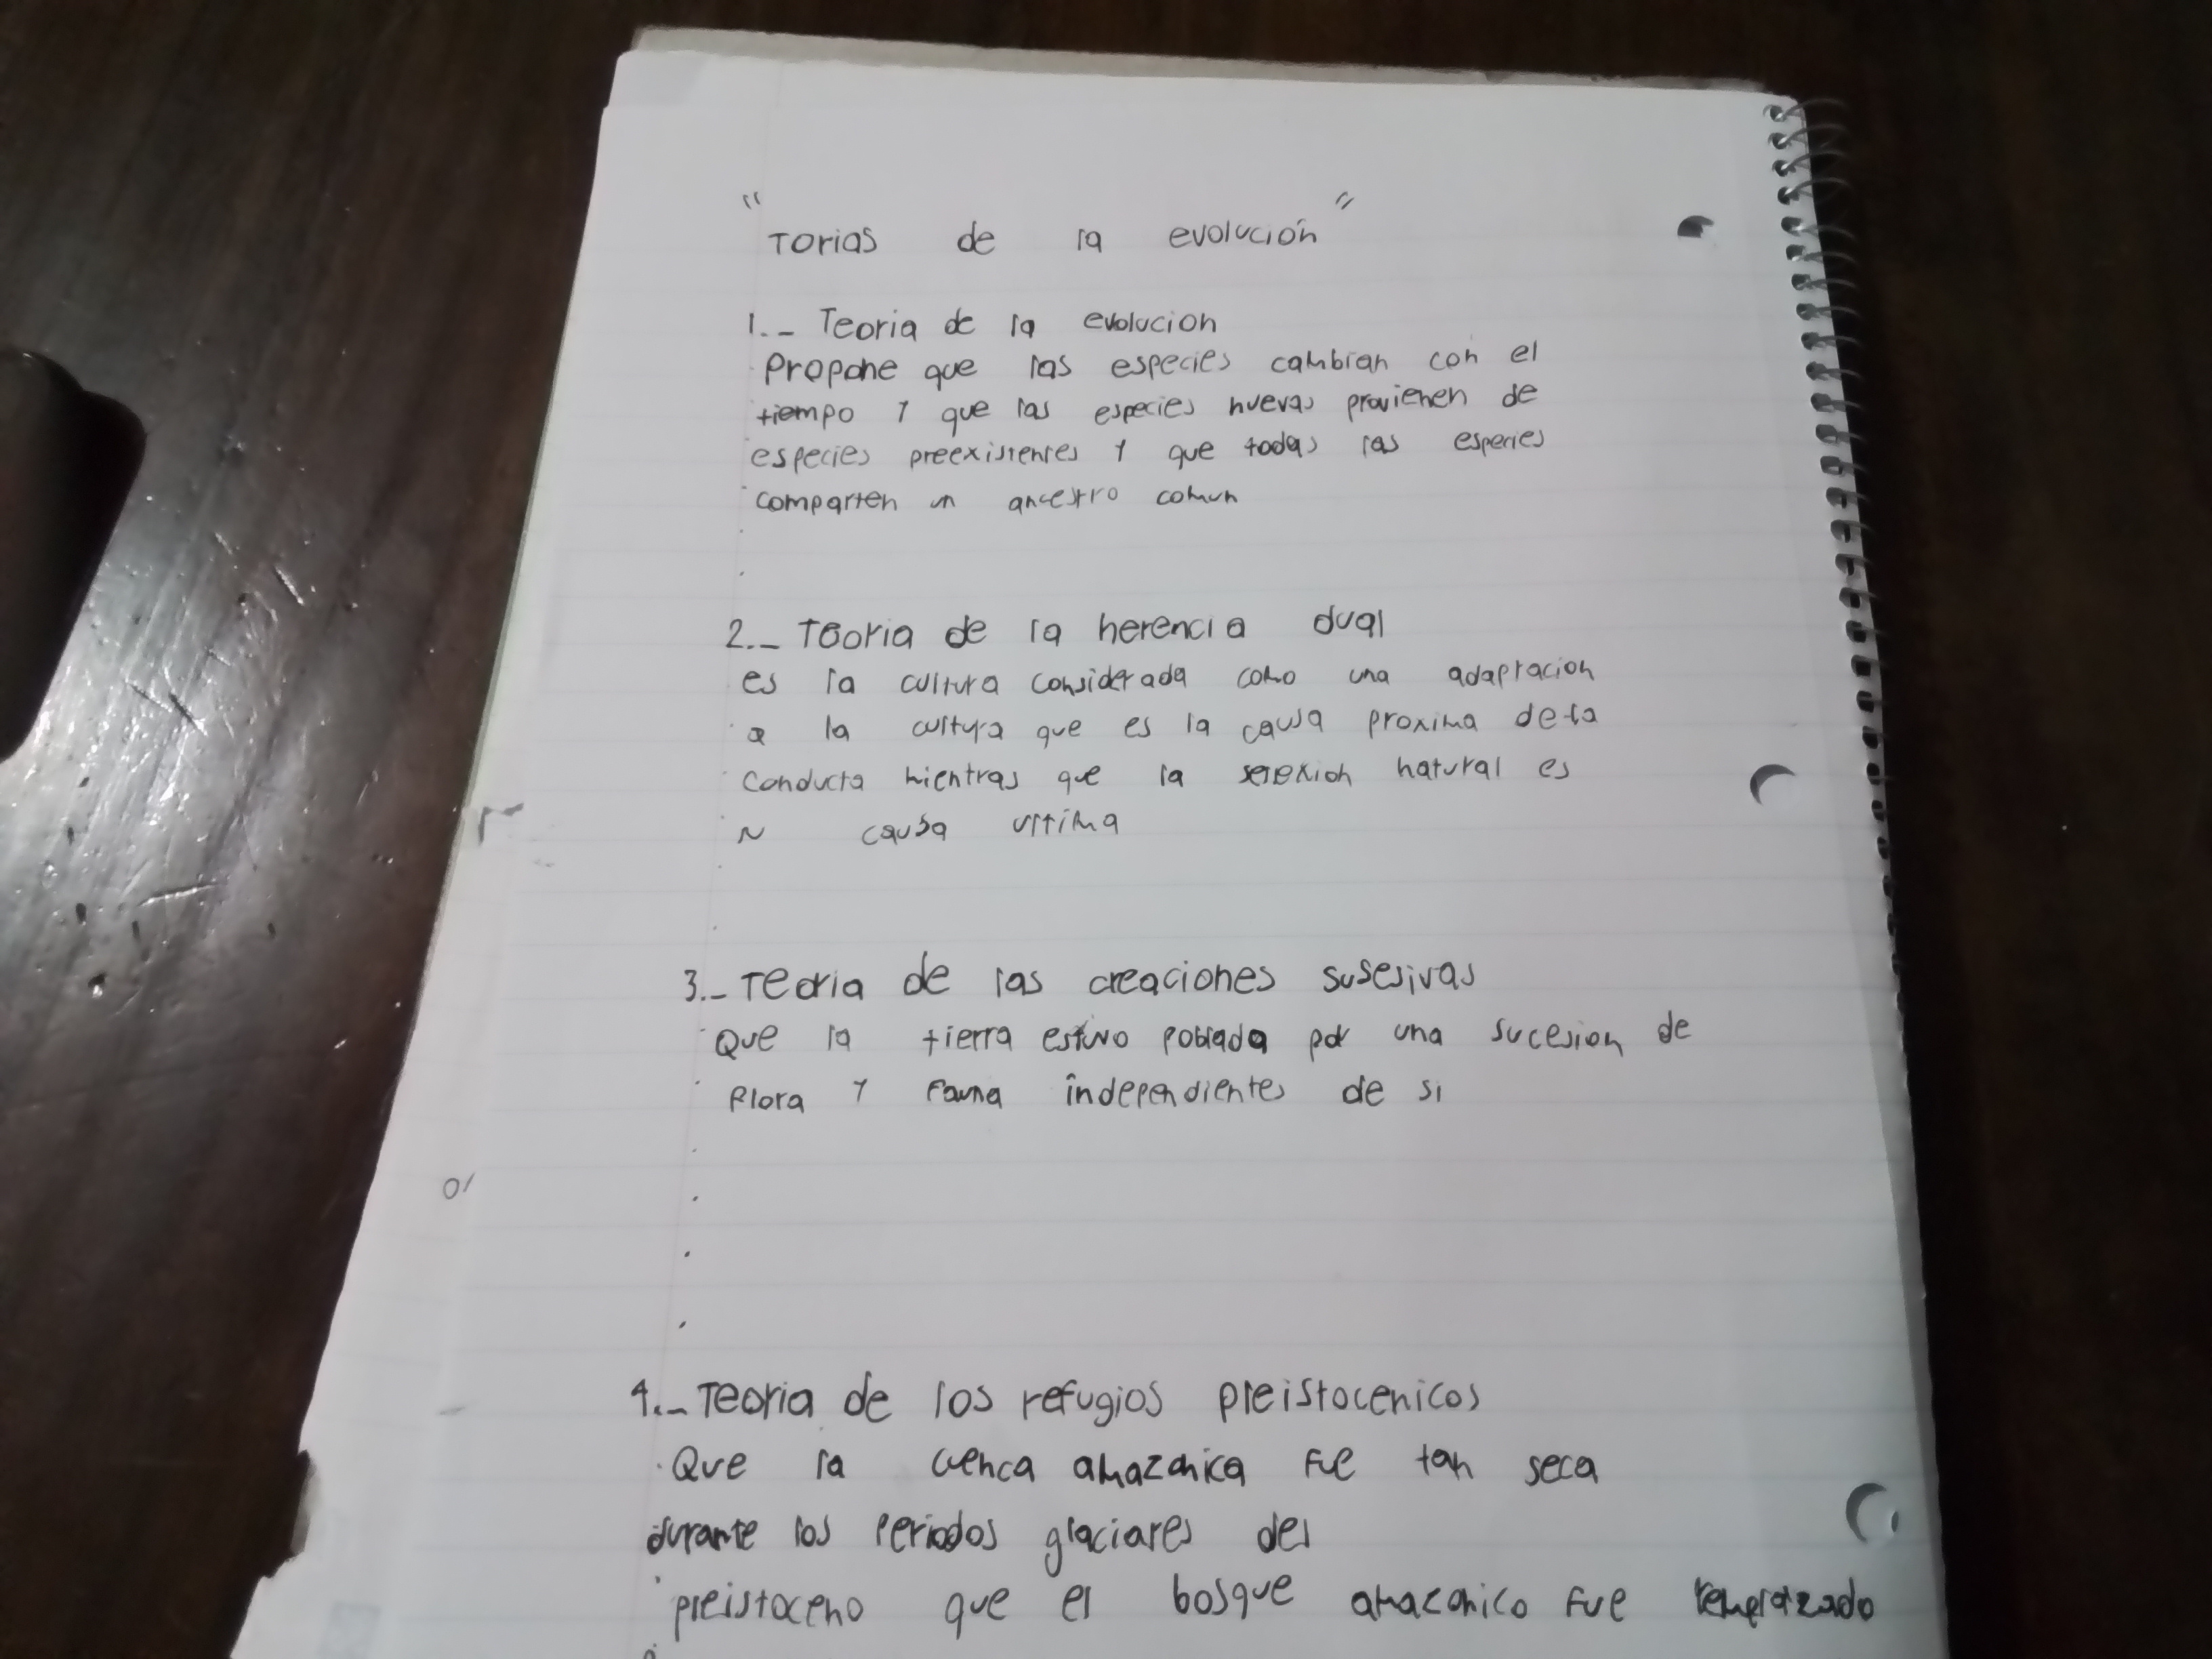 "Torias de la evolución"
1._ Teoria de la evolucion
Propone que las especies cambian con el
tiempo y que las especies nuevas provienen de
especies preexistentes y que todas las especies
comparten un ancestro comun
2._ Teoria de la herencia dual
es la cultura considerada como una adaptacion
a la cultura que es la causa proxima de la
conducta mientras que la natural es
causa ultima
3._ Teoria de las creaciones susesivas
Que la tierra estuvo poblada por una sucesion de
flora y fauna independientes de si
4._ Teoria de los refugios pleistocenicos
Que la cuenca amazonica fue tan seca
durante los periodos glaciares del
pleistoceno que el bosque amazonico fue